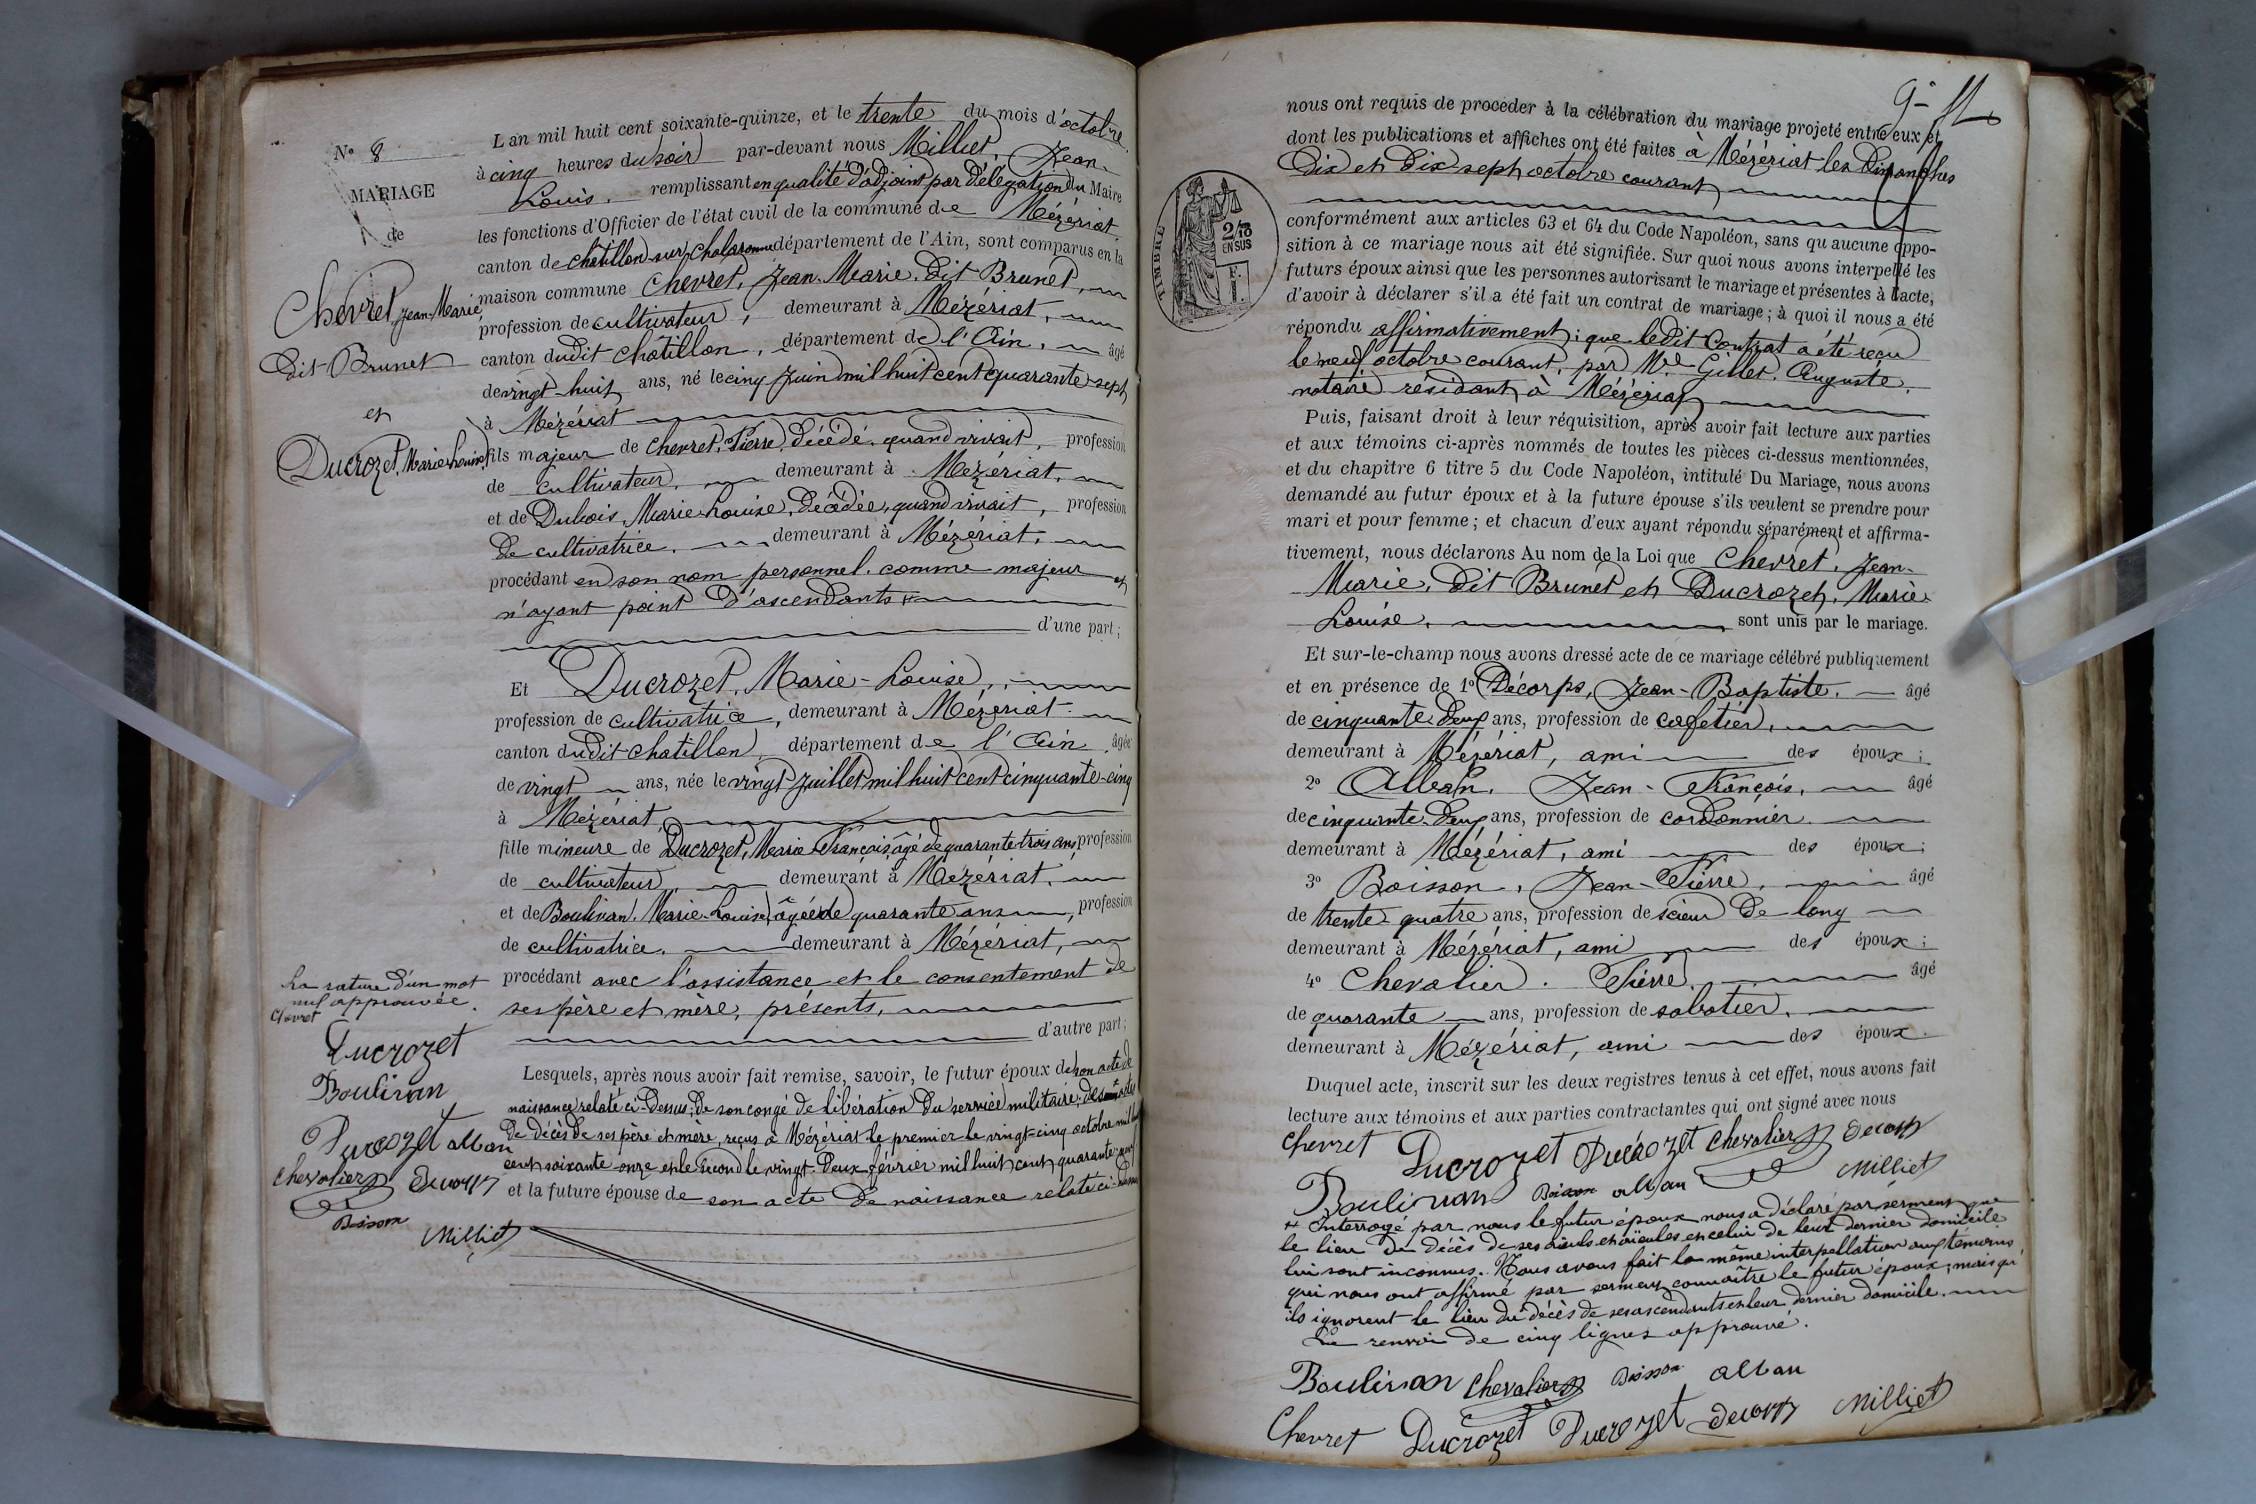 N° 8
MARIAGE
de
Chevret, Jean-Marie,
dit Brunet
et
Ducrozet, Marie-Louise
L'an mil huit cent soixante-quinze, et le trente du mois d'octobre
à cinq heures du soir par-devant nous Milliet, Jean-
Louis. remplissant en qualité d'adjoint par délégation du Maire
les fonctions d'Officier de l'état civil de la commune de Mézériat
canton de Châtillon-sur-Chalaronne département de l'Ain, sont comparus en la
maison commune Chevret, Jean-Marie, dit Brunet,
profession de cultivateur, demeurant à Mézériat,
canton dudit Châtillon, département de l'Ain, âgé
de vingt-huit ans, né le cinq Juin mil huit cent quarante-sept
à Mézériat
fils majeur de Chevret, Pierre, décédé, quand vivait, profession
de cultivateur, demeurant à Mézériat,
et de Dubois, Marie-Louise, décédée, quand vivait, profession
de cultivatrice, demeurant à Mézériat,
procédant en son nom personnel, comme majeur et
n'ayant point d'ascendants
d'une part;
Et Ducrozet, Marie-Louise,
profession de cultivatrice, demeurant à Mézériat
canton dudit Chatillon, département de l'Ain, âgée
de vingt ans, née le vingt Juillet mil huit cent cinquante-cinq
à Mézériat,
fille mineure de Ducrozet, Marie François, âgé de quarante-trois ans, profession
de cultivateur, demeurant à Mézériat,
et de Boulivan, Marie-Louise, âgée de quarante ans, profession
de cultivatrice, demeurant à Mézériat,
procédant avec l'assistance et le consentement de
ses père et mère, présents,
d'autre part;
Lesquels, après nous avoir fait remise, savoir, le futur époux de son acte de
naissance relaté ci-dessus; de son congé de libération du service militaire; des actes
de décès de ses père et mère, reçus à Mézériat le premier le vingt-cinq octobre mil huit
cent soixante-onze et le second le vingt-deux février mil huit cent quarante-neuf
et la future épouse de son acte de naissance relaté ci-dessus
La rature d'un mot
nul approuvée.
Chevret
Ducrozet
Boulivan
Ducrozet alban
Chevalier Decorps
Boisson
Milliet
9
nous ont requis de procéder à la célébration du mariage projeté entre eux et
dont les publications et affiches ont été faites à Mézériat les Dimanches
Dix et Dix-sept octobre courant
TIMBRE
2/10
EN SUS
F.
1.
conformément aux articles 63 et 64 du Code Napoléon, sans qu'aucune oppo-
sition à ce mariage nous ait été signifiée. Sur quoi nous avons interpellé les
futurs époux ainsi que les personnes autorisant le mariage et présentes à l'acte,
d'avoir à déclarer s'il a été fait un contrat de mariage; à quoi il nous a été
répondu affirmativement; que ledit contrat a été reçu
le neuf octobre courant, par Me Gillet, Auguste,
notaire résidant à Mézériat
Puis, faisant droit à leur réquisition, après avoir fait lecture aux parties
et aux témoins ci-après nommés de toutes les pièces ci-dessus mentionnées,
et du chapitre 6 titre 5 du Code Napoléon, intitulé Du Mariage, nous avons
demandé au futur époux et à la future épouse s'ils veulent se prendre pour
mari et pour femme; et chacun d'eux ayant répondu séparément et affirma-
tivement, nous déclarons Au nom de la Loi que Chevret, Jean-
Marie, dit Brunet et Ducrozet, Marie-
Louise, sont unis par le mariage.
Et sur-le-champ nous avons dressé acte de ce mariage célébré publiquement
et en présence de 1° Décorps, Jean-Baptiste, âgé
de cinquante-deux ans, profession de cafetier,
demeurant à Mézériat, ami des époux;
2° Alban, Jean-François, âgé
de cinquante-deux ans, profession de cordonnier
demeurant à Mézériat, ami des époux;
3° Boisson, Jean-Pierre, âgé
de trente-quatre ans, profession de scieur de long
demeurant à Mézériat, ami des époux;
4° Chevalier. Pierre, âgé
de quarante ans, profession de sabotier,
demeurant à Mézériat, ami des époux.
Duquel acte, inscrit sur les deux registres tenus à cet effet, nous avons fait
lecture aux témoins et aux parties contractantes qui ont signé avec nous
Chevret Ducrozet Ducrozet Chevalier Decorps
Boulivan Boisson alban Milliet
Interrogé par nous le futur époux nous a déclaré par serment que
le lieu du décès de ses aieuls et aieules et celui de leur dernier domicile
lui sont inconnus. Nous avons fait la même interpellation aux témoins
qui nous ont affirmé par serment connaître le futur époux; mais qu'
ils ignorent le lieu du décès de ses ascendants et leur dernier domicile.
Le renvoi de cinq lignes approuvé.
Boulivan Chevalier Boisson alban
Chevret Ducrozet Ducrozet Decorps Milliet